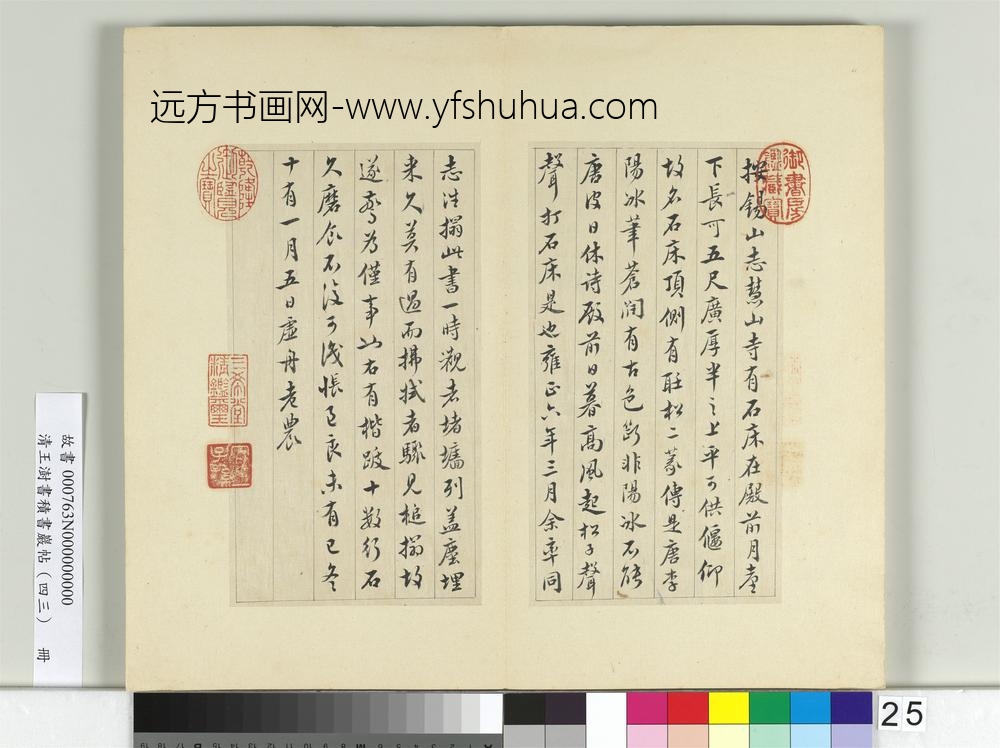 远方书画网-www.yfshuhua.com
按锡山志慧山寺有石床在殿前月臺
下長可五尺廣厚半之上平可供偃仰
故名石床頂側有聽松二篆傳是唐李
陽冰筆蒼潤有古色斷非陽冰不能
唐皮日休诗殿前日暮高風起松子聲
聲打石床是也雍正六年三月余率同
志洗搨此書一時觀者堵墻列盖塵埋
来久莫有過而拂拭者驟见槌搨故
遂為僅事右有楷跋十數行石
久磨不復可識悵良未有已冬
十有一月五日虛舟老農
御書房鑑藏寶
乾隆御覽之寶
三希堂精鑑璽
宜子孫
故書 000763N000000000
清王澍書積書巖帖（四三） 冊
25